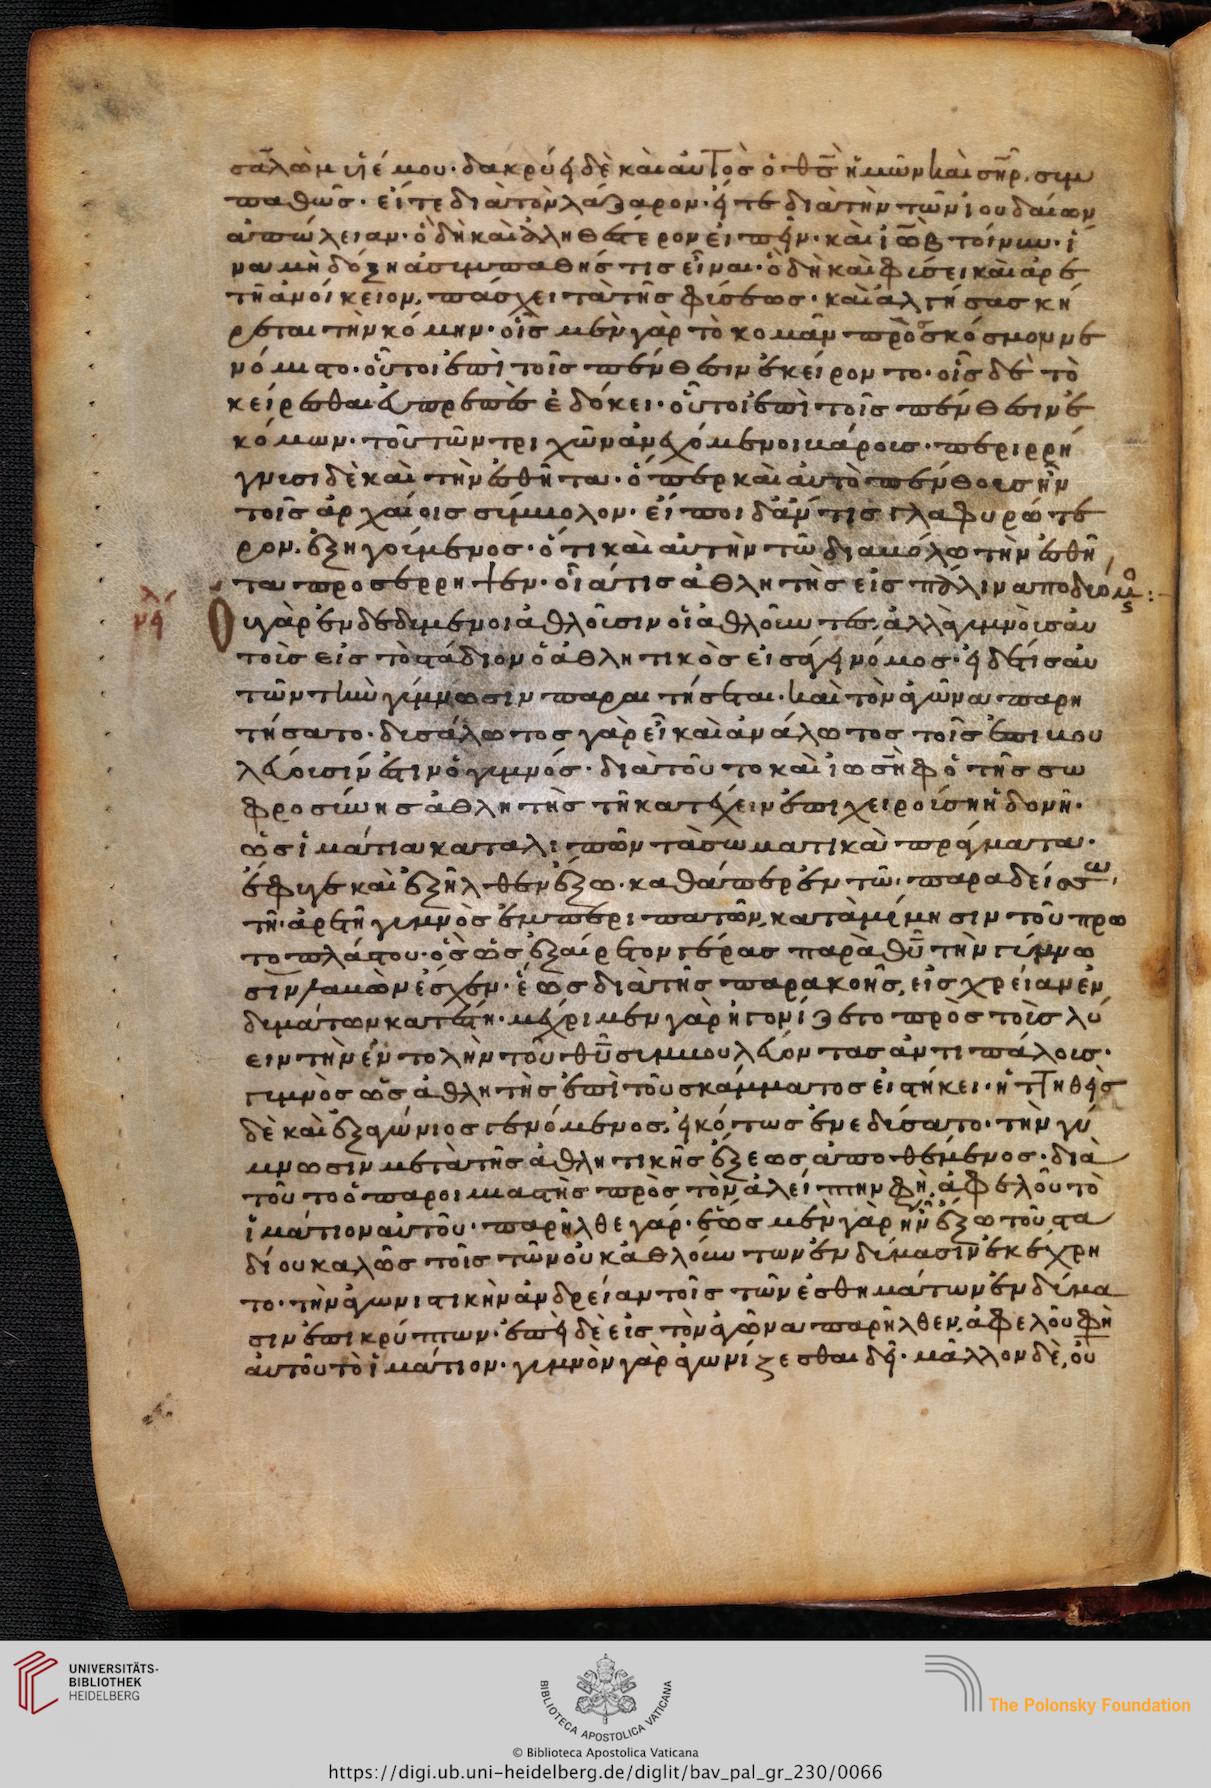 σαλὼμ υἱέ μου· δακρύει δὲ καὶ αὐτὸς ὁ θ̅ς̅ ἡμῶν καὶ σ̅η̅ρ̅. συμ
παθῶς· εἴτε διὰ τὸν λάζαρον· εἴτε διὰ τὴν τῶν ἰουδαίων
ἀπώλειαν· ὃ δὴ καὶ ἀληθέστερον εἰπεῖν· καὶ ἰὼβ τοίνυν· ἵ
να μὴ δόξη ἀσυμπαθής τις εἶναι· ὃ δὴ καὶ φύσει καὶ ἀρε
τῆ ἀνοίκειον, πάσχει τὰ τῆς φύσεως· καὶ ἀλγήσας κή
ρεται τὴν κόμην· οἷς μὲν γὰρ τὸ κομᾶν πρὸς κόσμου ἐνε
νόμιστο· οὗτοι ἐπὶ τοῖς πένθεσιν ἐκείροντο· οἷς δὲ τὸ
κείρεσθαι εὐπρεπὲς ἐδόκει· οὗτοι ἐπὶ τοῖς πένθεσιν ἐ
κόμων· τούτων τριχῶν ἀνεχόμενοι μάροις· περιρρή
γνυσι δὲ καὶ τὴν ἐσθῆτα· ὅπερ καὶ αὐτὸ πένθους ἦν
τοῖς ἀρχαίοις σύμβολον· εἴποι δ' ἄν τις γλαφυρώτε
ρον. ἐξηγούμενος· ὅτι καὶ αὐτὴν τῶ διαβόλω τὴν ἐσθῆ
τα προσέρρηψεν· οἷά τις ἀθλητὴς εἰς πάλιν ἀποδυόμ̅ς̅:
Οὐ γὰρ ἐνδεδυμένοι ἀθλοῦσιν οἱ ἀθλοῦντες. ἀλλὰ γυμνοὺς αὐ
τοὺς εἰς τὸ στάδιον ὁ ἀθλητικὸς εἰσάγει νόμος· εἰ δέ τις αὐ
τῶν τὴν γύμνωσιν παραιτήσεται· καὶ τὸν ἀγῶνα παρη
τήσατο· δυσάλωτος γὰρ εἶ καὶ ἀνάλωτος τοῖς ἐπιβου
λεύουσίν ἐστιν ὁ γυμνός· διὰ τοῦτο καὶ ἰωσὴφ ὁ τῆς σω
φροσύνης ἀθλητὴς τῆ κατέχειν ἐπιχειρούση ἡδονῆ·
ὡς ἱμάτια καταλιπὼν τὰ σωματικὰ πράγματα·
ἔφυγε καὶ ἐξῆλθεν ἔξω· καθάπερ ἐν τῶ παραδείσω,
τῆ ἀρετῆ γυμνὸς ἐμπεριπατῶν, κατὰ μίμησιν τοῦ πρω
τοπλάστου· ὃς ὡς ἐξαίρετον γέρας παρὰ θ̅υ̅ τὴν γύμνω
σιν λαβὼν ἔσχεν· ἕως διὰ τῆς παρακοῆς, εἰς χρείαν ἐν
δυμάτων κατέστη· μέχρι μὲν γὰρ ἠγονίζετο πρὸς τοὺς λύ
ειν τὴν ἐντολὴν τοῦ θ̅υ̅ συμβουλεύοντας ἀντιπάλους·
γυμνὸς ὡς ἀθλητὴς ἐπὶ τοῦ σκάμματος εἱστήκει· ἡττηθεὶς
δὲ καὶ ἐξαγώνιος γενόμενος, εἰκότως ἐνεδύσατο· τὴν γύ
μνωσιν μετὰ τῆς ἀθλητικῆς ἕξεως ἀποθέμενος· διὰ
τοῦτο ὁ παροιμιαστὴς πρὸς τὸν ἀλείπτην φη̅, ἀφελοῦ τὸ
ἱμάτιον αὐτοῦ· παρῆλθε γάρ· ἕως μὲν γὰρ ἦν ἔξω τοῦ στα
δίου καλῶς τοῖς τῶν οὐκ ἀθλούντων ἐνδύμασιν ἐκέχρη
το· τὴν ἀγωνιστικὴν ἀνδρείαν τοῖς τῶν ἐσθημάτων ἐνδύμα
σιν ἐπικρύπτων· ἐπεὶ δὲ εἰς τὸν ἀγῶνα παρῆλθεν, ἀφελοῦ φη̅
αὐτοῦ τὸ ἱμάτιον· γυμνὸν γὰρ ἀγωνίζεσθαι δεῖ· μᾶλλον δὲ, οὐ
UNIVERSITÄTS-
BIBLIOTHEK
HEIDELBERG
BIBLIOTECA APOSTOLICA VATICANA
The Polonsky Foundation
© Biblioteca Apostolica Vaticana
https://digi.ub.uni-heidelberg.de/diglit/bav_pal_gr_230/0066